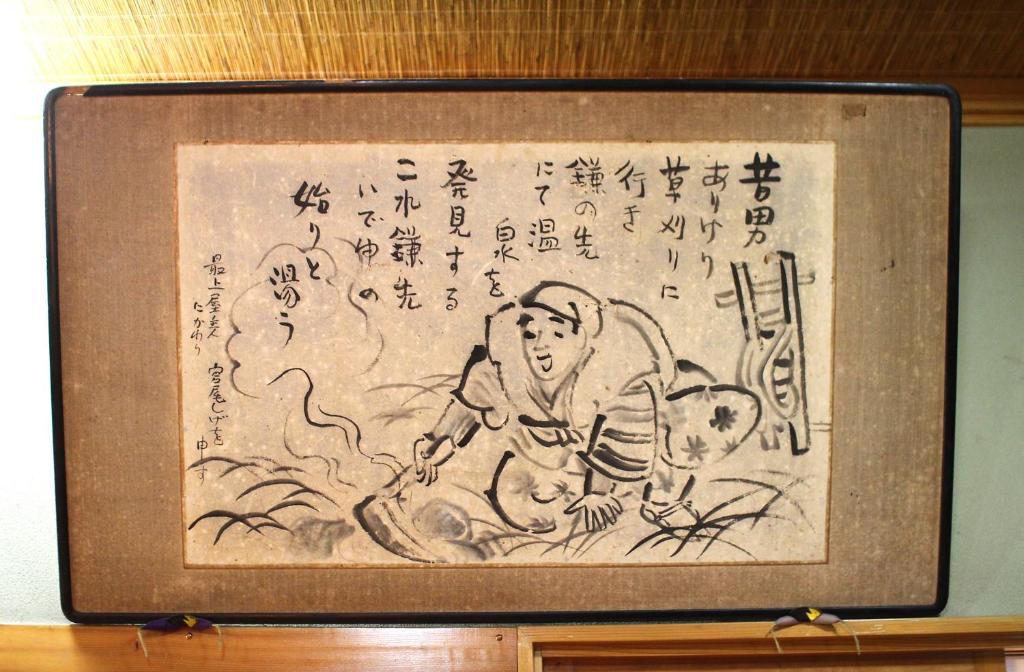 昔男
ありけり
草刈りに
行き
鎌の先
にて温
泉を
発見する
これ鎌先
いで申の
始りと
湯う
最上屋
にかわり
宮尾しげを
申す